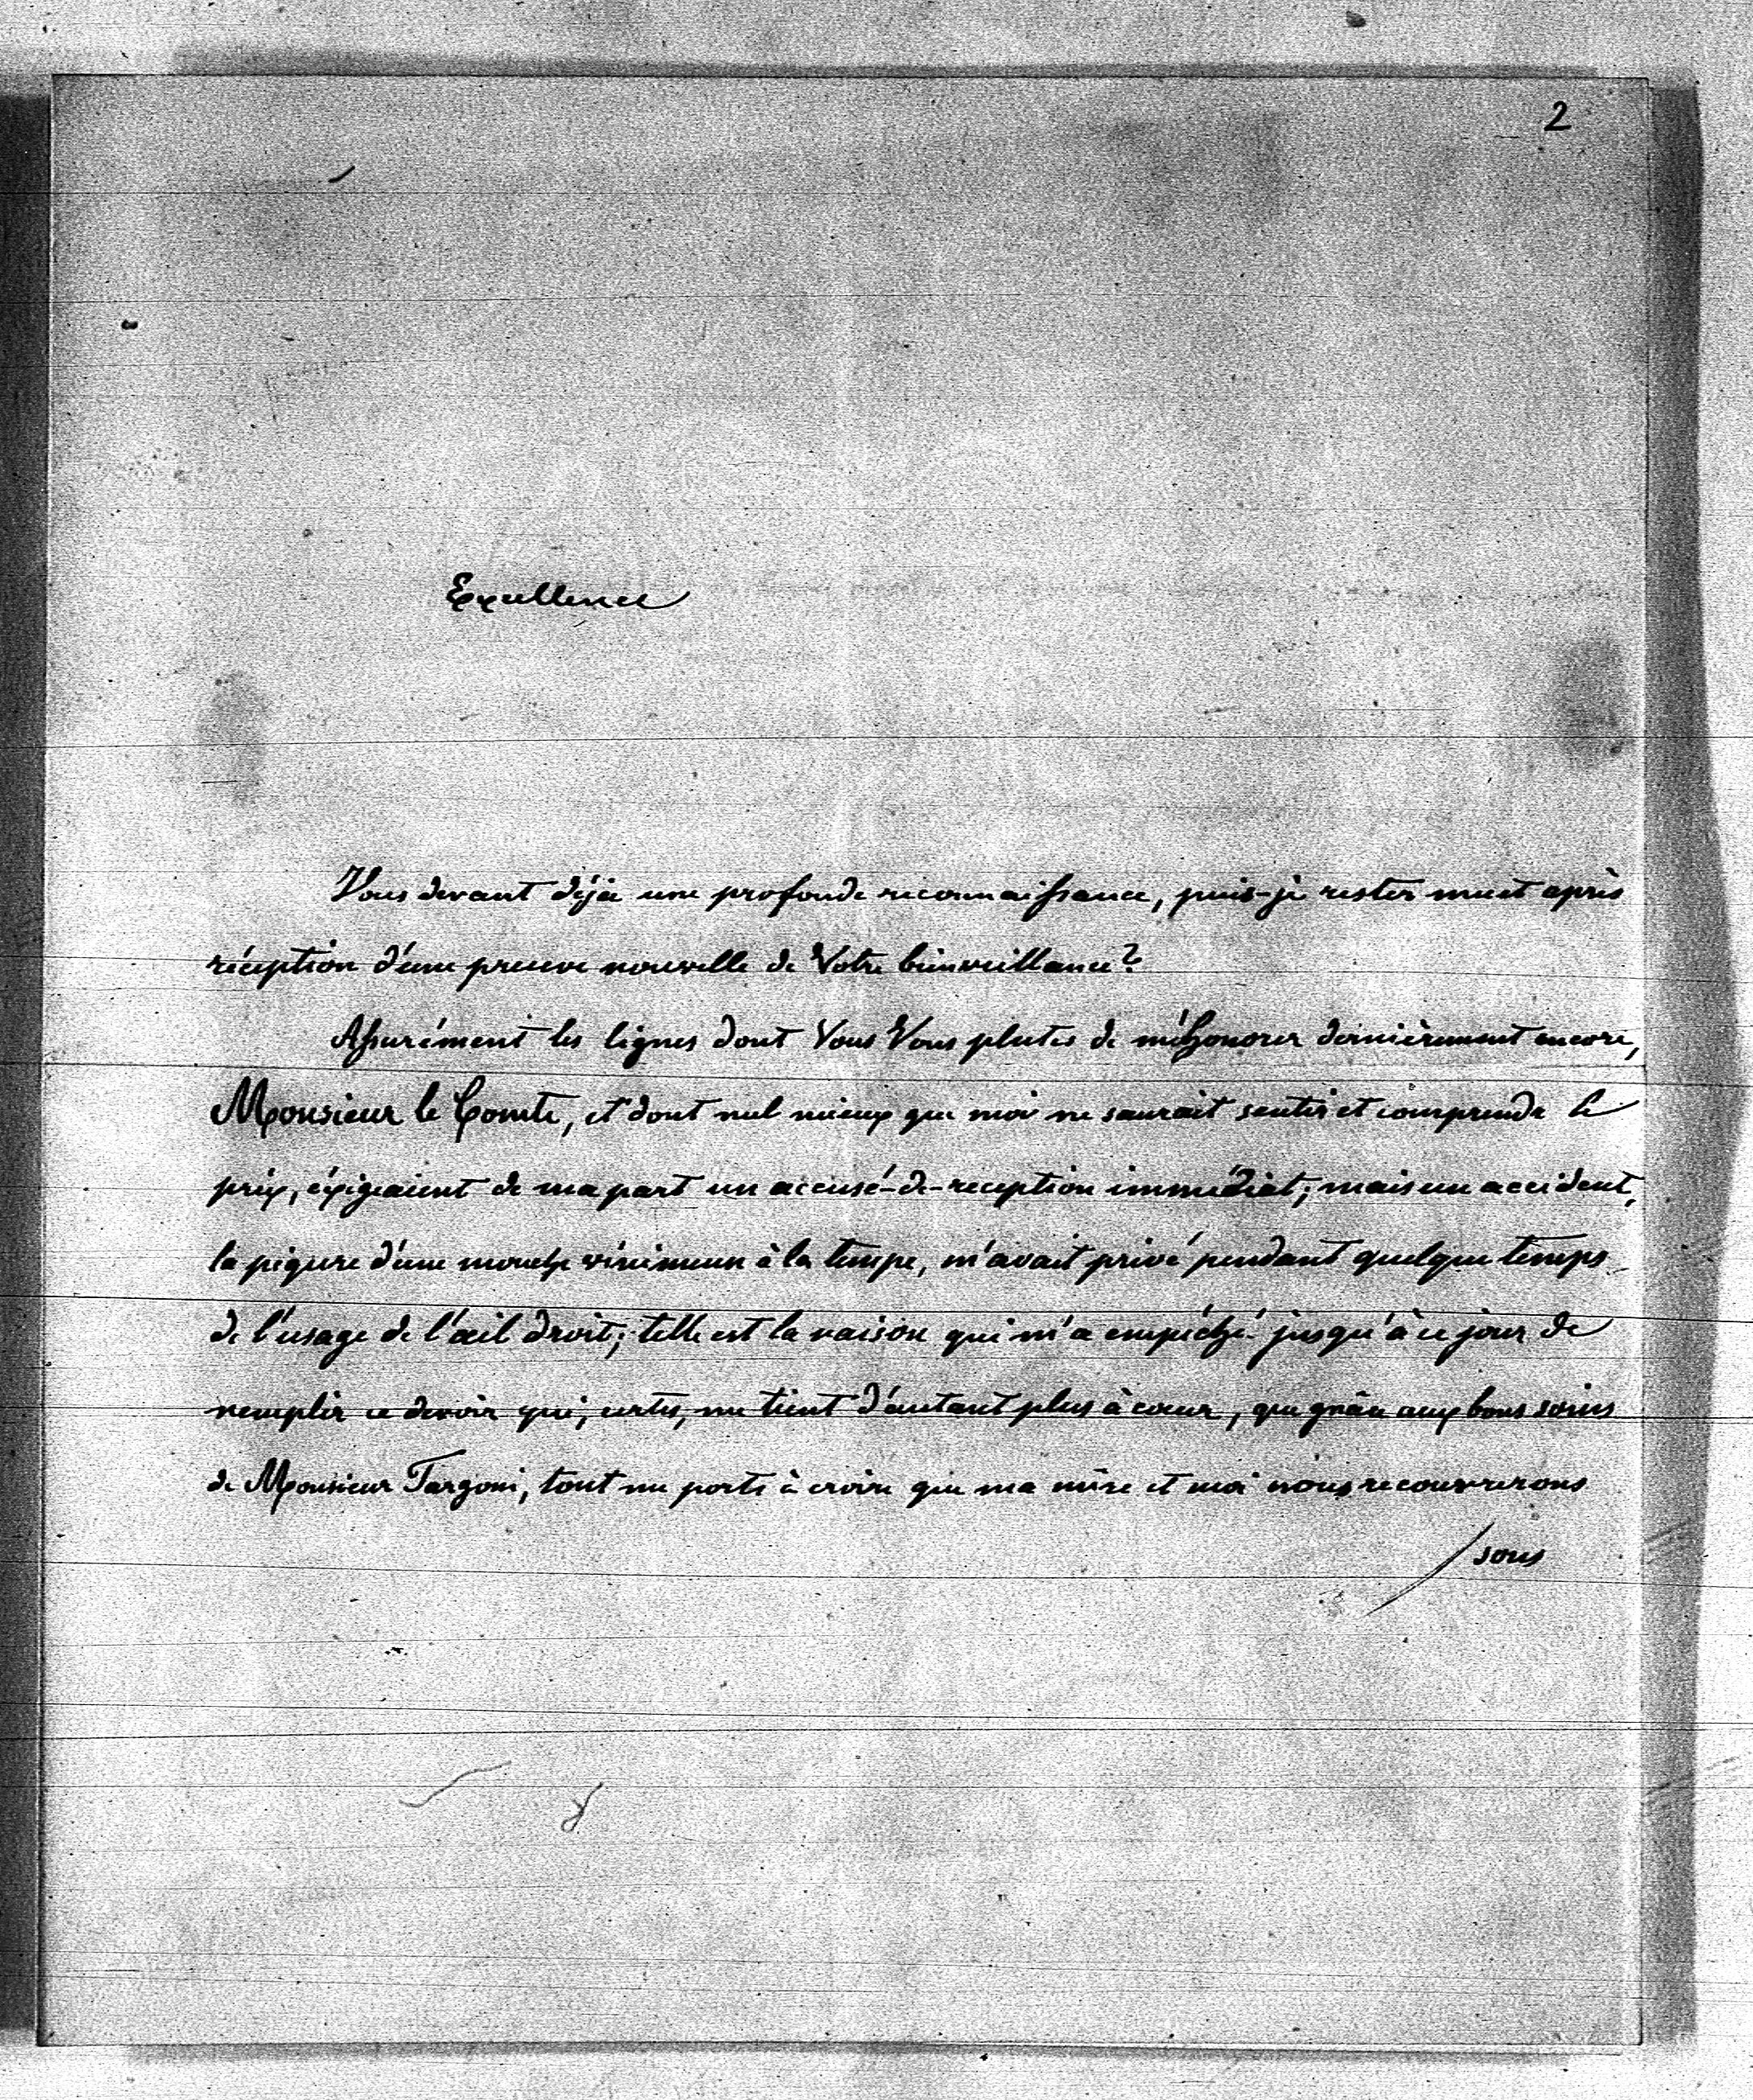 2
Excellence
Vous devant déjà une profonde reconnaissance, puis-je rester muet après
réception d'une preuve nouvelle de Votre bienveillance?
Assurément les lignes dont Vous Vous plutes de m'honorer dernièrement encore,
Monsieur le Comte, et dont nul mieux que moi ne saurait sentir et comprendre le
prix, éxigeaient de ma part un accusé-de-reception immédiat; mais un accident,
la piqure d'une mouche vénimeuse à la tempe, m'avait privé pendant quelque temps
de l'usage de l'œil droit; telle est la raison qui m'a empéché jusqu'à ce jour de
remplir ce devoir qui, certes, me tient d'autant plus à cœur, que grâce aux bons soins
de Monsieur Targoni, tout me porte à croire que ma mère et moi nous recouvrerons
sous